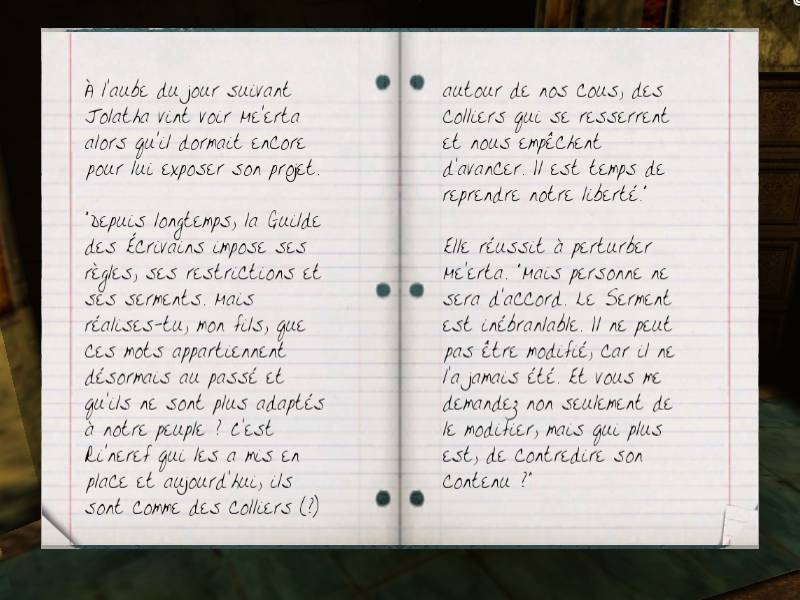 À l'aube du jour suivant
Jolatha vint voir Me'erta
alors qu'il dormait encore
pour lui exposer son projet.
"Depuis longtemps, la Guilde
des Écrivains impose ses
règles, ses restrictions et
ses serments. Mais
réalises-tu, mon fils, que
ces mots appartiennent
désormais au passé et
qu'ils ne sont plus adaptés
à notre peuple ? C'est
Ri'neref qui les a mis en
place et aujourd'hui, ils
sont comme des colliers (?)
autour de nos cous, des
colliers qui se resserrent
et nous empêchent
d'avancer. Il est temps de
reprendre notre liberté."
Elle réussit à perturber
Me'erta. "Mais personne ne
sera d'accord. Le Serment
est inébranlable. Il ne peut
pas être modifié, car il ne
l'a jamais été. Et vous me
demandez non seulement de
le modifier, mais qui plus
est, de contredire son
contenu ?"